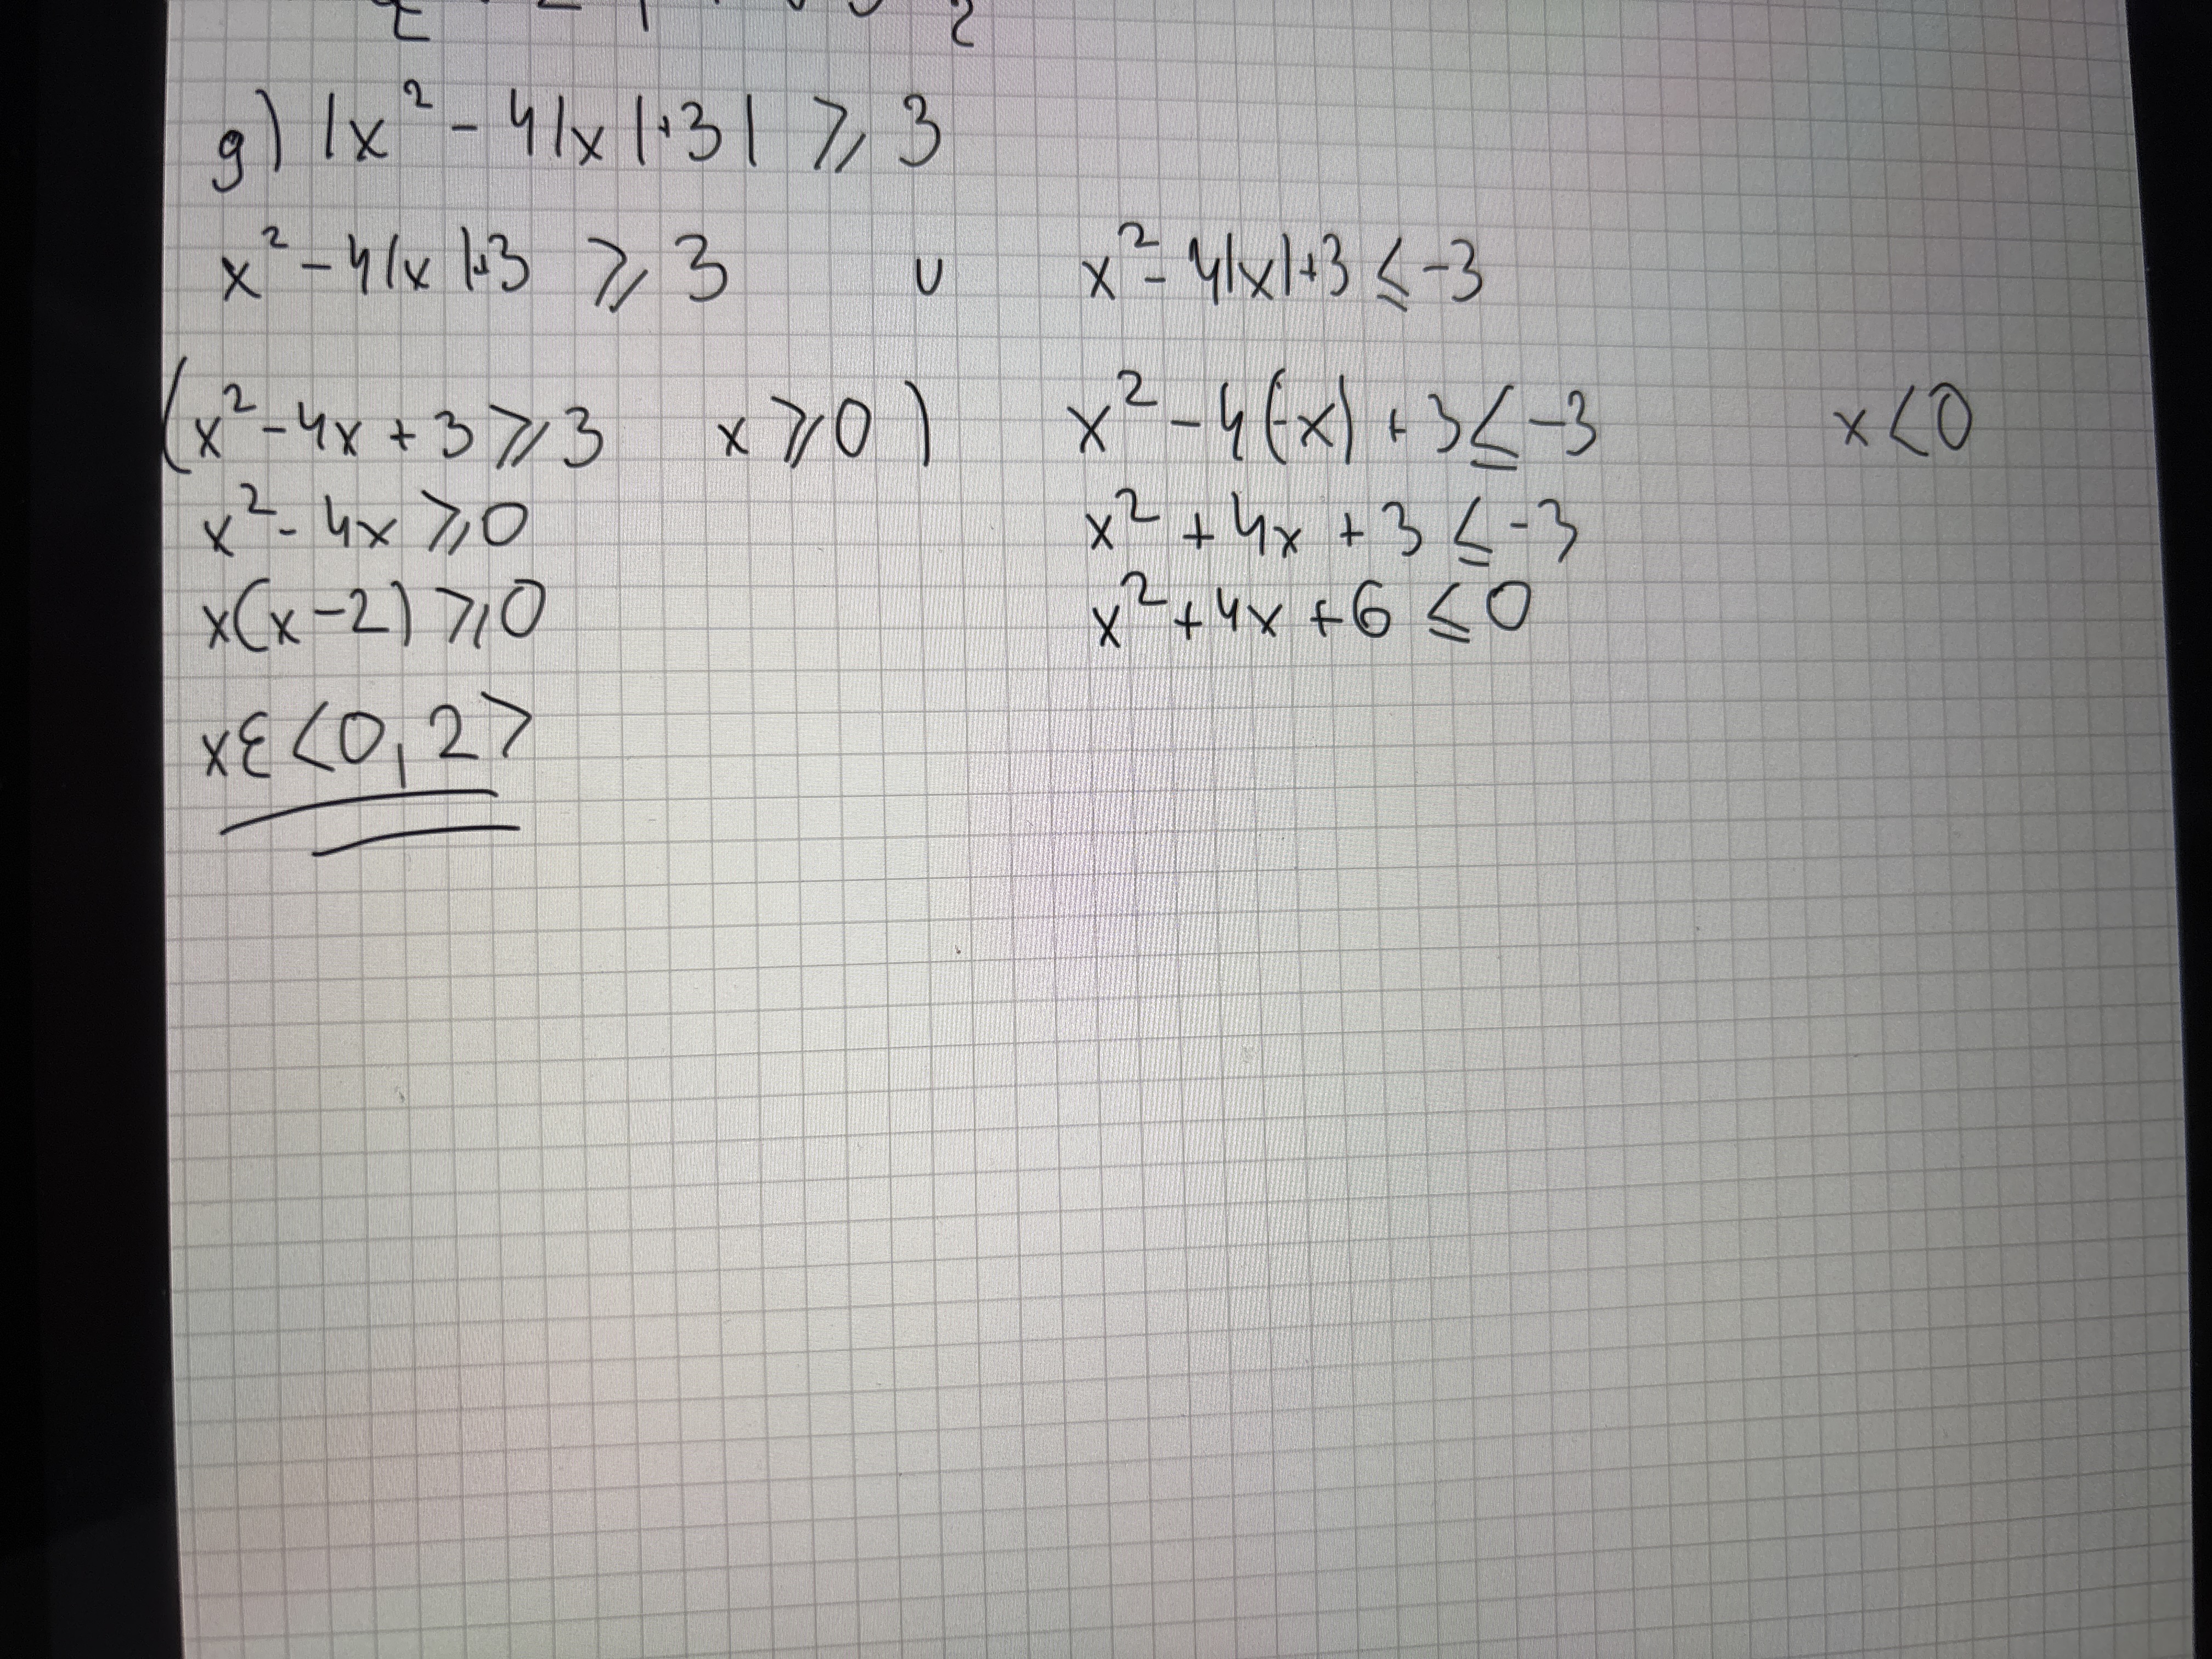 g) |x² - 4|x|+3| ⩾ 3
x² - 4|x|+3 ⩾ 3 ∪ x² - 4|x|+3 ≤ -3
(x² - 4x + 3 ⩾ 3 x ⩾ 0) x² - 4(-x) + 3 ≤ -3 x < 0
x² - 4x ⩾ 0 x² + 4x + 3 ≤ -3
x(x-2) ⩾ 0 x² + 4x + 6 ≤ 0
x ∈ <0, 2>